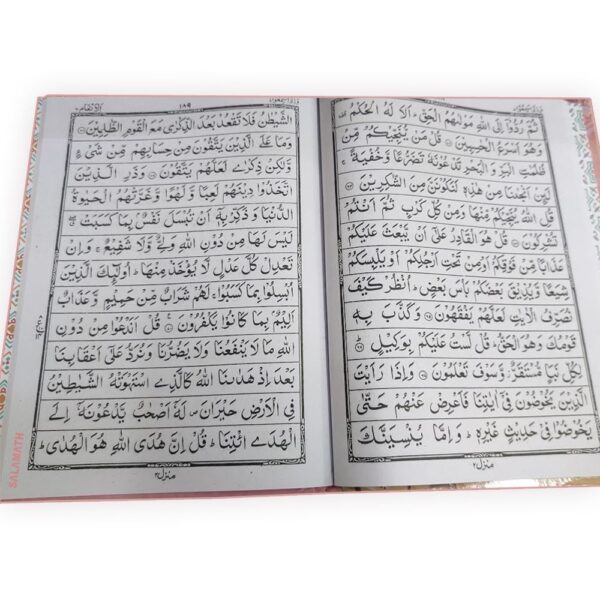 واذا سمعوا
ثُمَّ رُدُّوْۤا اِلَى اللّٰهِ مَوْلٰىهُمُ الْحَقِّ ؕ اَلَا لَهُ الْحُكْمُ
وَهُوَ اَسْرَعُ الْحٰسِبِيْنَ ۝ قُلْ مَنْ يُّنَجِّيْكُمْ مِّنْ
ظُلُمٰتِ الْبَرِّ وَ الْبَحْرِ تَدْعُوْنَهٗ تَضَرُّعًا وَّخُفْيَةً ۚ
لَىِٕنْ اَنْجٰىنَا مِنْ هٰذِهٖ لَنَكُوْنَنَّ مِنَ الشّٰكِرِيْنَ ۝
قُلِ اللّٰهُ يُنَجِّيْكُمْ مِّنْهَا وَمِنْ كُلِّ كَرْبٍ ثُمَّ اَنْتُمْ
تُشْرِكُوْنَ ۝ قُلْ هُوَ الْقَادِرُ عَلٰۤى اَنْ يَّبْعَثَ عَلَيْكُمْ
عَذَابًا مِّنْ فَوْقِكُمْ اَوْ مِنْ تَحْتِ اَرْجُلِكُمْ اَوْ يَلْبِسَكُمْ
شِيَعًا وَّيُذِيْقَ بَعْضَكُمْ بَاْسَ بَعْضٍ ؕ اُنْظُرْ كَيْفَ
نُصَرِّفُ الْاٰيٰتِ لَعَلَّهُمْ يَفْقَهُوْنَ ۝ وَكَذَّبَ بِهٖ
قَوْمُكَ وَهُوَ الْحَقُّ ؕ قُلْ لَّسْتُ عَلَيْكُمْ بِوَكِيْلٍ ۝
لِكُلِّ نَبَاٍ مُّسْتَقَرٌّ ؗ وَّسَوْفَ تَعْلَمُوْنَ ۝ وَاِذَا رَاَيْتَ
الَّذِيْنَ يَخُوْضُوْنَ فِيْۤ اٰيٰتِنَا فَاَعْرِضْ عَنْهُمْ حَتّٰى
يَخُوْضُوْا فِيْ حَدِيْثٍ غَيْرِهٖ ؕ وَاِمَّا يُنْسِيَنَّكَ
منزل ٢
واذا سمعوا ١٨٩ الانعام
الشَّيْطٰنُ فَلَا تَقْعُدْ بَعْدَ الذِّكْرٰى مَعَ الْقَوْمِ الظّٰلِمِيْنَ ۝
وَمَا عَلَى الَّذِيْنَ يَتَّقُوْنَ مِنْ حِسَابِهِمْ مِّنْ شَيْءٍ
وَّلٰكِنْ ذِكْرٰى لَعَلَّهُمْ يَتَّقُوْنَ ۝ وَذَرِ الَّذِيْنَ
اتَّخَذُوْا دِيْنَهُمْ لَعِبًا وَّلَهْوًا وَّغَرَّتْهُمُ الْحَيٰوةُ
الدُّنْيَا وَذَكِّرْ بِهٖۤ اَنْ تُبْسَلَ نَفْسٌۢ بِمَا كَسَبَتْ
لَيْسَ لَهَا مِنْ دُوْنِ اللّٰهِ وَلِيٌّ وَّلَا شَفِيْعٌ ۚ وَاِنْ
تَعْدِلْ كُلَّ عَدْلٍ لَّا يُؤْخَذْ مِنْهَا ؕ اُولٰٓىِٕكَ الَّذِيْنَ
اُبْسِلُوْا بِمَا كَسَبُوْا ۚ لَهُمْ شَرَابٌ مِّنْ حَمِيْمٍ وَّعَذَابٌ
اَلِيْمٌۢ بِمَا كَانُوْا يَكْفُرُوْنَ ۝ قُلْ اَنَدْعُوْا مِنْ دُوْنِ
اللّٰهِ مَا لَا يَنْفَعُنَا وَلَا يَضُرُّنَا وَنُرَدُّ عَلٰۤى اَعْقَابِنَا
بَعْدَ اِذْ هَدٰىنَا اللّٰهُ كَالَّذِى اسْتَهْوَتْهُ الشَّيٰطِيْنُ
فِى الْاَرْضِ حَيْرَانَ ۪ لَهٗۤ اَصْحٰبٌ يَّدْعُوْنَهٗۤ اِلَى
الْهُدَى ائْتِنَا ؕ قُلْ اِنَّ هُدَى اللّٰهِ هُوَ الْهُدٰى ؕ
منزل ٢
SALAMATH